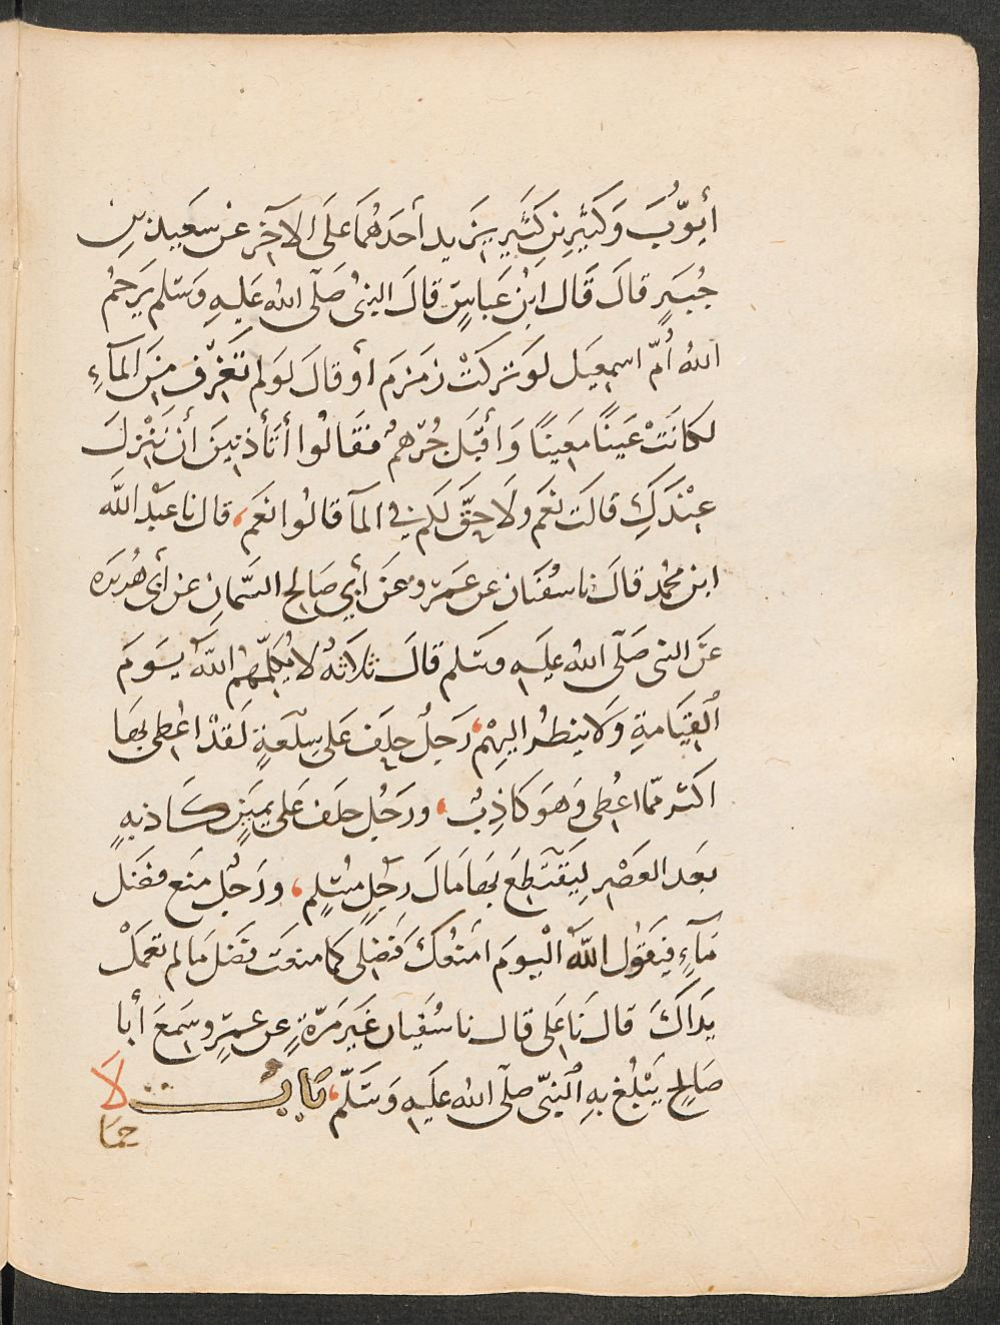 أيوُّبَ وَكَثيِرِ بنِ كَثَيِرٍ يزَيد أحَدهُمَا عَلَى الآخَرِ عَنْ سَعَيدِ بنِ
جُبَيرٍ قالَ قَال ابنُ عَباسٍ قالَ النبىُ صَلّى اللهُ عَليهِ وَسَلم يَرحَمُ
اللهُ أُمّ اسمعِيل لَو تركَتْ زمَزمَ أو قالَ لَو لم تَغرِف مِنَ المآءِ
لكانَتْ عَينًا مَعَينًا وَأقبَل جُرهمُ فقَالُوا أتَأذنِينَ أن نَنْزلَ
عِنْدَكِ قالَت نعَم وَلاَ حَقّ لَكم في المآ قالُوا نعَم، قال نا عَبْد اللّه
ابن محُمد قالَ نا سفُيَان عن عَمَرو عَن أبِي صَالِح السَّمانِ عَن أبى هُريرَه
عَن النبى صَلّى اللهُ عليَهِ وسَلم قالَ ثلاَثَهُ لا يُكلّمهُم اللّهُ يَومَ
القِيَامةِ وَلاَ ينظُر اليهِمْ، رَجلُ حلَف عَلى سِلعَةٍ لَقدْ اعُطى بهَا
اكَثر ممّا اعُطى وَهوَ كاذِبٌ، ورَجُل حلَف عَلى يمِيَنٍ كاذبهٍ
بعَد العَصْرِ لِيَقتَطِعَ بهَا مَالَ رجُلٍ مسُلمٍ، ورَجُل منَع فضَل
مَآءٍ فيَقوُل اللّهُ اليْومَ امَنعُكَ فَضلى كما منعَت فَضل مَا لم تعَملْ
يدَاكَ قال نَا عَلى قال نا سُفيَان غَير مَرّةٍ عن عمَرٍو سَمعَ أبا
صَالحٍ يَبْلُغ بهِ النبّى صلّى الله عليَهِ وَسَلّم، بَابُ لاَ
حِمَا